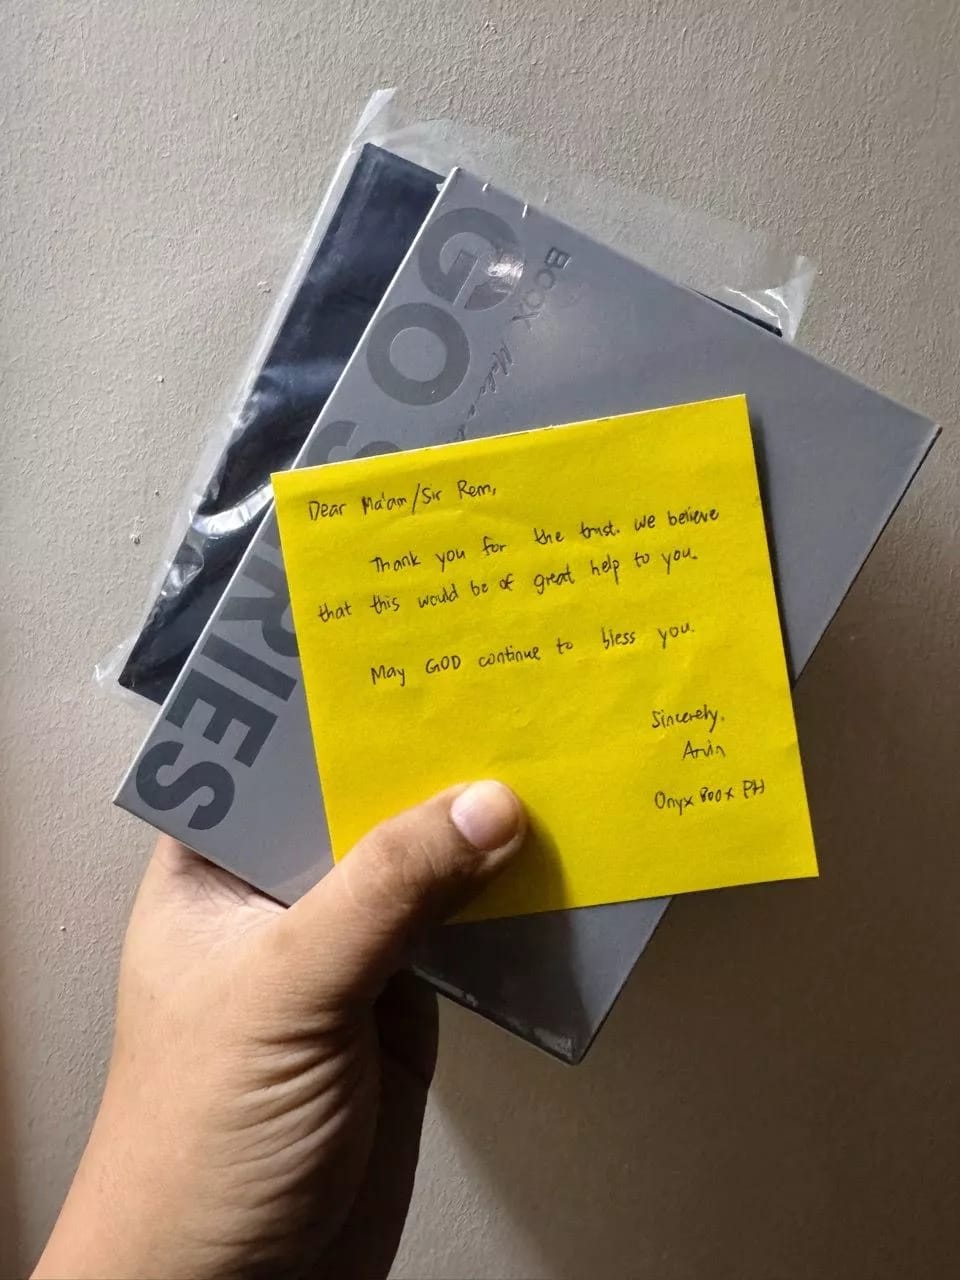 GO SERIES
BOOX
Dear Ma'am/Sir Rem,
Thank you for the trust. We believe
that this would be of great help to you.
May GOD continue to bless you.
Sincerely,
Arvin
Onyx Boox PH